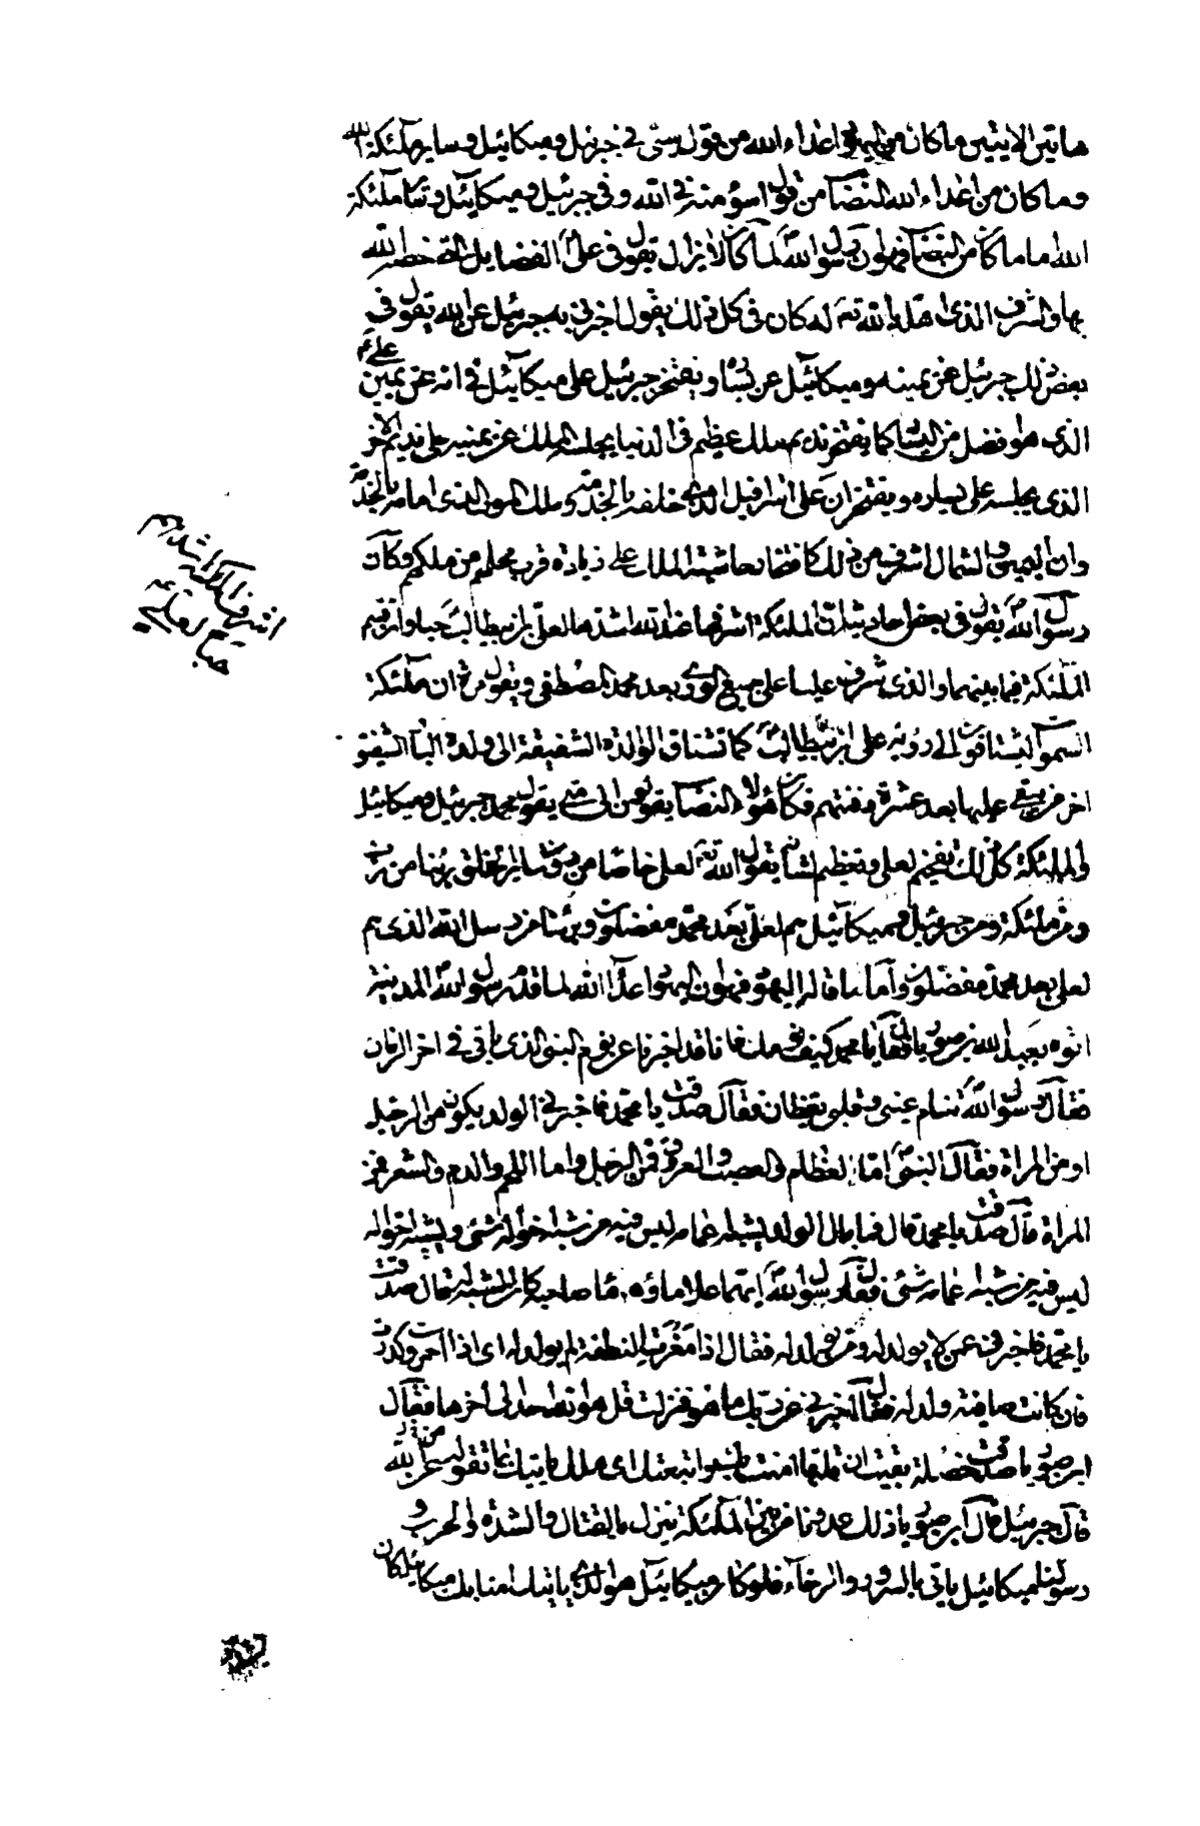 هاتين الايتين ما كان من اليهود اعداء الله من قول سيئ في جبرئيل وميكائيل وساير ملئكة الله
وما كان من اعداء الله النصاب من قول اسوء منه في الله وفي جبرئيل وميكآئيل وسائر ملئكة
الله اما ما كان من النصاب فهو ان رسول الله ص لما كان لا يزال يقول في علي ع الفضايل التي خصه الله
بها والشرف الذي اهله الله تع له كان في كل ذلك يقول اخبرني به جبرئيل عن الله يقول في
بعض ذلك جبرئيل عن يمينه وميكآئيل عن يساره ويفتخر جبرئيل على ميكآئيل في انه عن يمين علي ع
الذي هو افضل من اليسار كما يفتخر نديم ملك عظيم في الدنيا يجلسه الملك عن يمينه على نديم الاخر
الذي يجلسه على يساره ويفتخران على اسرافيل الذي خلفه بالخدمة وملك الموت الذي امامه بالخدمة
وان اليمين والشمال اشرف من ذلك كافتخار حاشية الملك على زيادة قرب محلهم من ملكهم وكان
رسول الله ص يقول في بعض احاديثه ان الملئكة اشرفها عند الله اشدها لعلي بن ابيطالب حبا وان قسم
الملئكة فيما بينهما والذي شرف عليا على جميع الورى بعد محمد المصطفى ويقول مرة ان ملآئكة
السموات ليشتاقون الى رؤية علي بن ابيطالب كما تشتاق الوالدة الشفيقة الى ولدها البار الشفيق
اخر من بقي عليها بعد عشرة دفنتهم فكان هؤلاء النصاب يقولون الى متى يقول محمد جبرئيل وميكائيل
والملئكة كل ذلك تفخيم لعلي وتعظيم لشانه ويقول الله تع لعلي خاصا من دون ساير الخلق برئنا من رب
ومن ملئكة ومن جبرئيل وميكآئيل هم لعلي بعد محمد مفضلون وبرئنا من رسل الله الذي هم
لعلي بعد محمد مفضلون واما ما قاله اليهود فهو ان اليهود اعدآء الله لما قدم رسول الله ص المدينة
اتوه بعبد الله بن صوريا فقال يا محمد كيف نومك فانا قد اخبرنا عن نوم النبي الذي ياتي في اخر الزمان
فقال رسول الله ص تنام عيني وقلبي يقظان فقال صدقت يا محمد فاخبرني الولد يكون من الرجل
او من المراة فقال النبي ص اما العظام والعصب والعروق فمن الرجل واما اللحم والدم والشعر فمن
المراة قال صدقت يا محمد قال فما بال الولد يشبه اعمامه ليس فيه من شبه اخواله شئ ويشبه اخواله
ليس فيه من شبه اعمامه شئ فقال رسول الله ص ايهما علا ماؤه مآء صاحبه كان الشبه له قال صدقت
يا محمد فاخبرني عمن لا يولد له ومن يولد له فقال اذا مغرت النطفة لم يولد له اي اذا احمرت وكدرت
فان كانت صافية ولد له فقال اخبرني عن ربك ما هو فنزلت قل هو الله احد الى اخرها فقال
ابن صوريا صدقت خصلة بقيت ان قلتها امنت بك واتبعتك اي ملك ياتيك بما تقوله عن الله
قال جبرئيل قال ابن صوريا ذلك عدونا من بين الملآئكة ينزل بالقتال والشدة والحرب و
رسولنا ميكائيل ياتي بالسرور والرخآء فلو كان ميكآئيل هو الذي ياتيك امنا بك ميكائيل كان
اشرف الملآئكة اشدهم
حبا لعلي ع